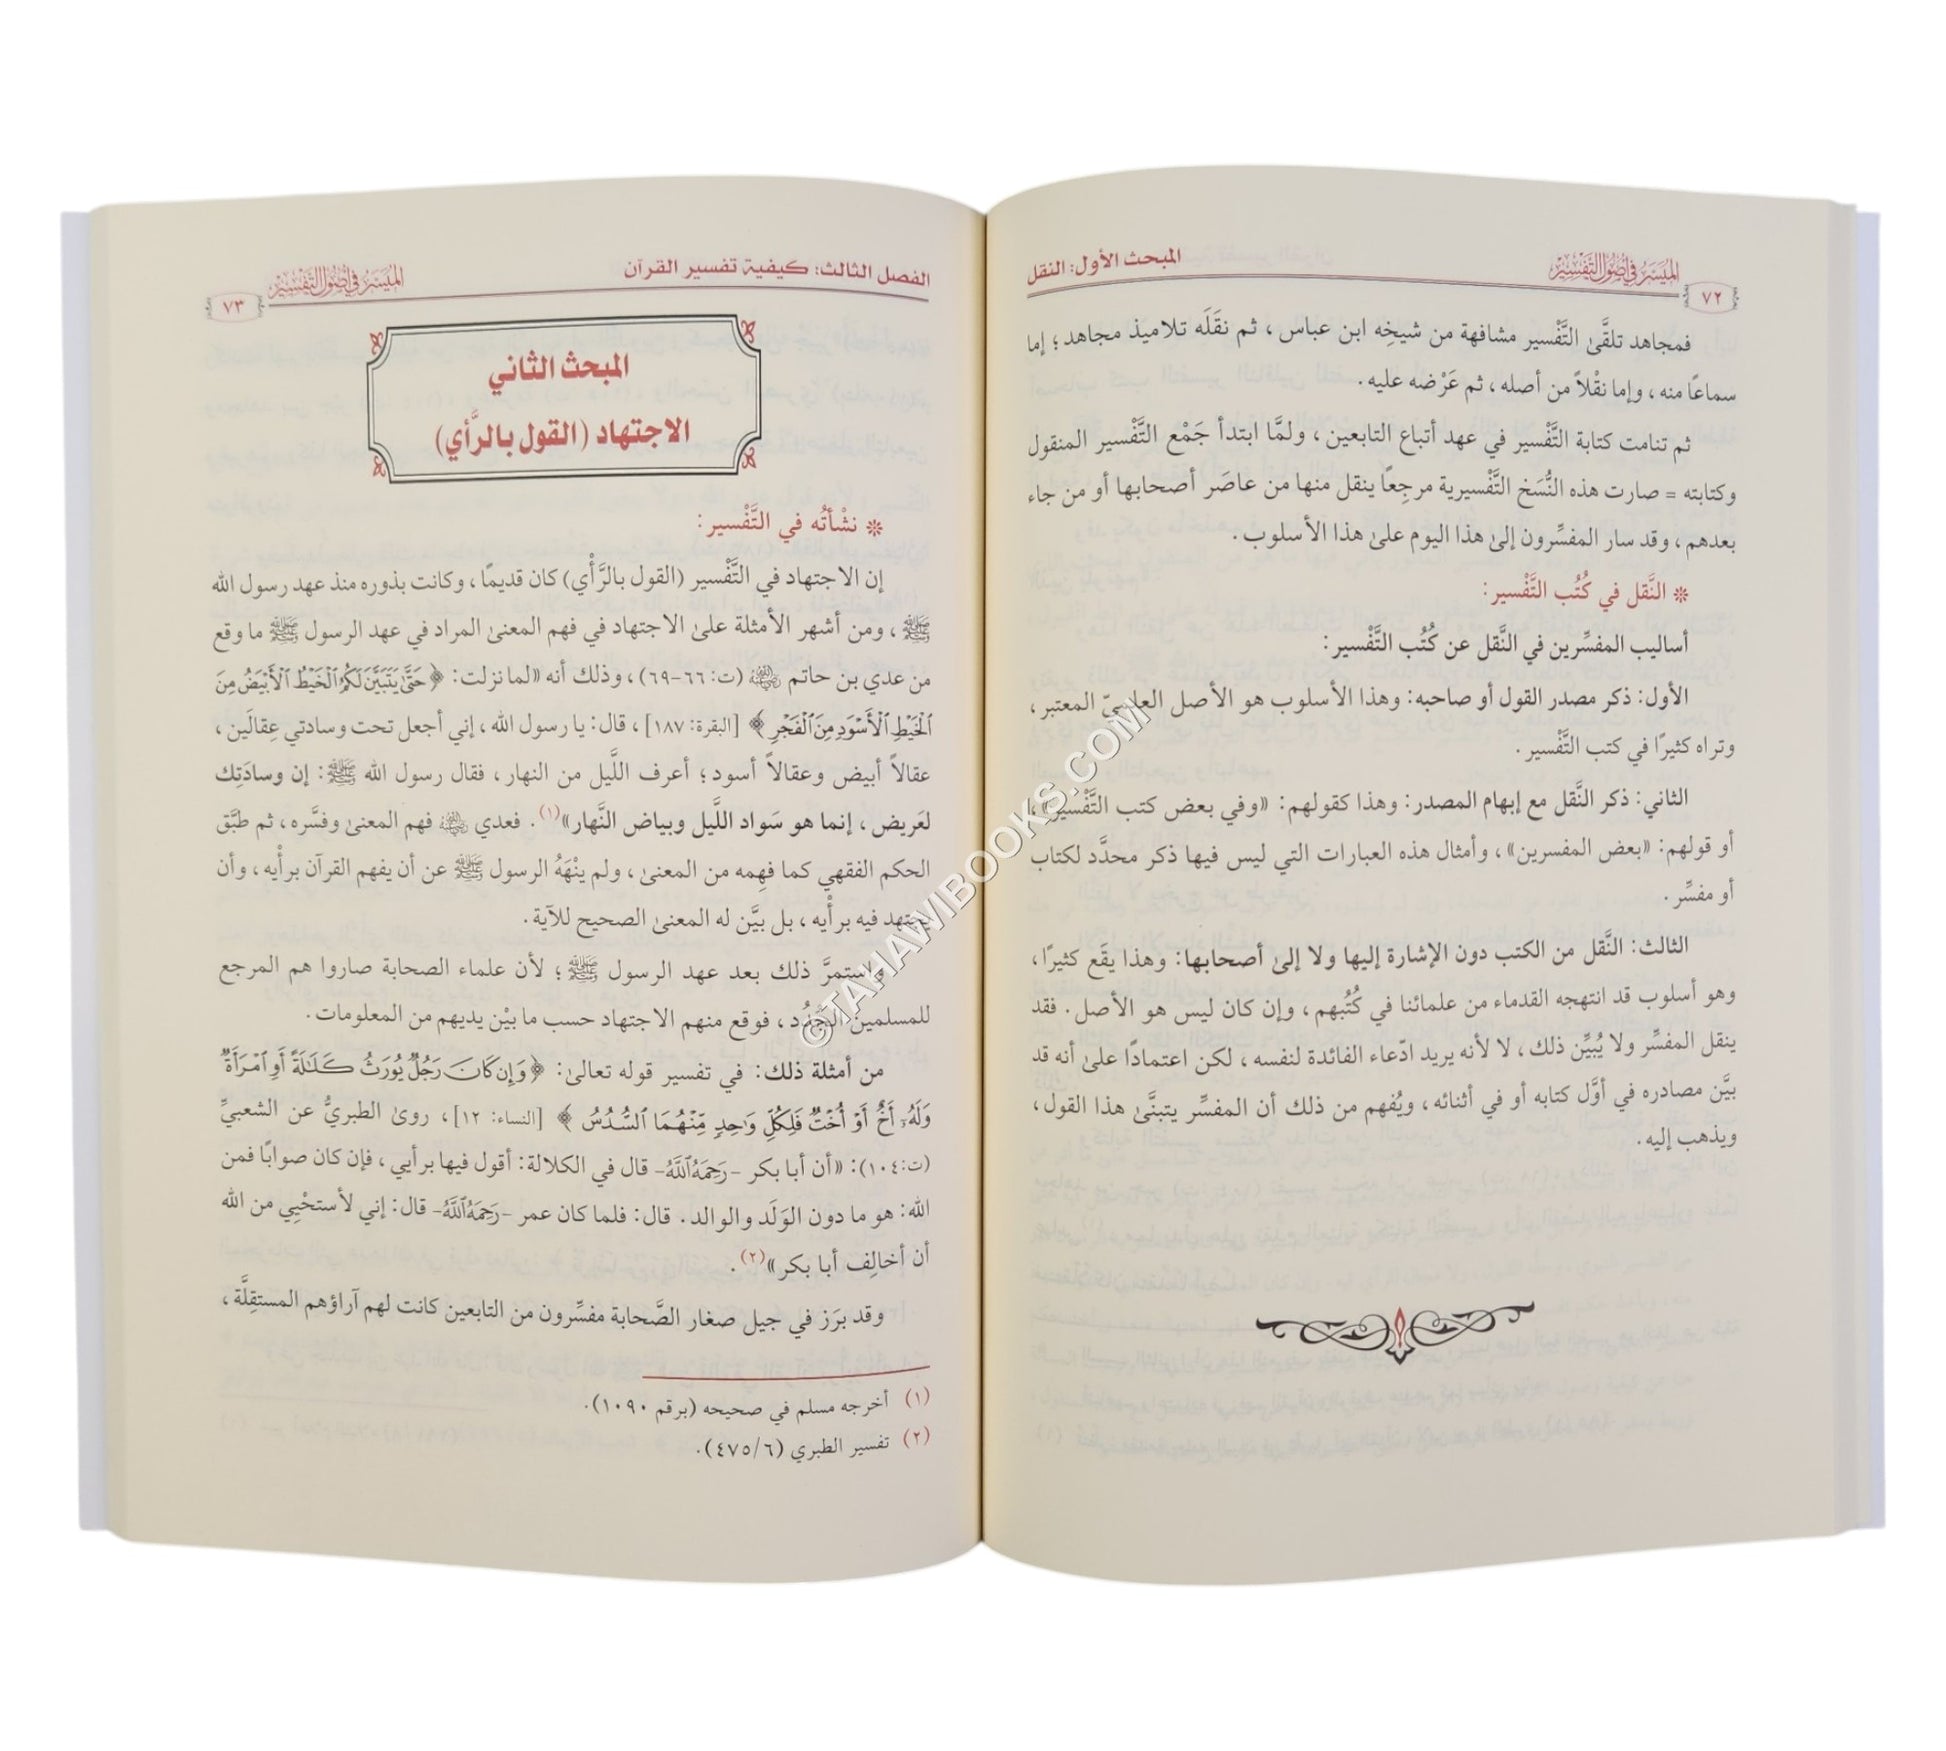 الميسر في أصول التفسير
٧٢
المبحث الأول: النقل
فمجاهد تلقَّى التَّفْسير مشافهة من شيخِه ابن عباس ، ثم نقَلَه تلاميذ مجاهد ؛ إما
سماعًا منه ، وإما نقْلاً من أصله ، ثم عَرْضه عليه .
ثم تنامت كتابة التَّفْسير في عهد أتباع التابعين ، ولمَّا ابتدأ جَمْع التَّفْسير المنقول
وكتابته = صارت هذه النُّسَخ التَّفْسيرية مرجِعًا ينقل منها من عاصَر أصحابها أو من جاء
بعدهم ، وقد سار المفسِّرون إلى هذا اليوم على هذا الأسلوب .
* النَّقل في كُتُب التَّفْسير:
أساليب المفسِّرين في النَّقل عن كُتُب التَّفْسير:
الأول: ذكر مصدر القول أو صاحبه: وهذا الأسلوب هو الأصل العلميّ المعتبر ،
وتراه كثيرًا في كتب التَّفْسير .
الثاني: ذكر النَّقل مع إبهام المصدر: وهذا كقولهم: «وفي بعض كتب التَّفْسير» ،
أو قولهم: «بعض المفسرين» ، وأمثال هذه العبارات التي ليس فيها ذكر محدَّد لكتاب
أو مفسِّر .
الثالث: النَّقل من الكتب دون الإشارة إليها ولا إلى أصحابها: وهذا يقَع كثيرًا ،
وهو أسلوب قد انتهجه القدماء من علمائنا في كُتُبهم ، وإن كان ليس هو الأصل . فقد
ينقل المفسِّر ولا يُبيِّن ذلك ، لا لأنه يريد ادّعاء الفائدة لنفسه ، لكن اعتمادًا على أنه قد
بيَّن مصادره في أوَّل كتابه أو في أثنائه ، ويُفهم من ذلك أن المفسِّر يتبنَّى هذا القول ،
ويذهب إليه .
الفصل الثالث: كيفية تفسير القرآن
الميسر في أصول التفسير
٧٣
المبحث الثاني
الاجتهاد (القول بالرَّأي)
* نشْأتُه في التَّفْسير:
إن الاجتهاد في التَّفْسير (القول بالرَّأْي) كان قديمًا ، وكانت بذوره منذ عهد رسول الله
ﷺ ، ومن أشهر الأمثلة على الاجتهاد في فهم المعنى المراد في عهد الرسول ﷺ ما وقع
من عدي بن حاتم رضي الله عنه (ت: ٦٦-٦٩) ، وذلك أنه «لما نزلت: ﴿حَتَّىٰ يَتَبَيَّنَ لَكُمُ ٱلْخَيْطُ ٱلْأَبْيَضُ مِنَ
ٱلْخَيْطِ ٱلْأَسْوَدِ مِنَ ٱلْفَجْرِ﴾ [البقرة: ١٨٧] ، قال: يا رسول الله ، إني أجعل تحت وسادتي عِقالَين ،
عقالاً أبيض وعقالاً أسود ؛ أعرف اللَّيل من النهار ، فقال رسول الله ﷺ: إن وسادَتِك
لعَريض ، إنما هو سَواد اللَّيل وبياض النَّهار»(١) . فعدي رضي الله عنه فهم المعنى وفسَّره ، ثم طبَّق
الحكم الفقهي كما فهِمه من المعنى ، ولم ينْهَهُ الرسول ﷺ عن أن يفهم القرآن برأْيه ، وأن
يجتهد فيه برأْيه ، بل بيَّن له المعنى الصحيح للآية .
واستمرَّ ذلك بعد عهد الرسول ﷺ ؛ لأن علماء الصحابة صاروا هم المرجع
للمسلمين الجُدُد ، فوقع منهم الاجتهاد حسب ما بيْن يديهم من المعلومات .
من أمثلة ذلك: في تفسير قوله تعالى: ﴿وَإِن كَانَ رَجُلٌ يُورَثُ كَلَٰلَةً أَوِ ٱمْرَأَةٌ
وَلَهُۥٓ أَخٌ أَوْ أُخْتٌ فَلِكُلِّ وَٰحِدٍ مِّنْهُمَا ٱلسُّدُسُ﴾ [النساء: ١٢] ، روى الطبريُّ عن الشعبيِّ
(ت:١٠٤): «أن أبا بكر -رَحِمَهُ ٱللَّهُ- قال في الكلالة: أقول فيها برأيي ، فإن كان صوابًا فمن
الله: هو ما دون الوَلَد والوالد . قال: فلما كان عمر -رَحِمَهُ ٱللَّهُ- قال: إني لأستحْيِي من الله
أن أخالِف أبا بكر»(٢) .
وقد برَز في جيل صغار الصَّحابة مفسِّرون من التابعين كانت لهم آراؤهم المستقِلَّة ،
(١) أخرجه مسلم في صحيحه (برقم ١٠٩٠).
(٢) تفسير الطبري (٤٧٥/٦).
©TAHAWIBOOKS.COM